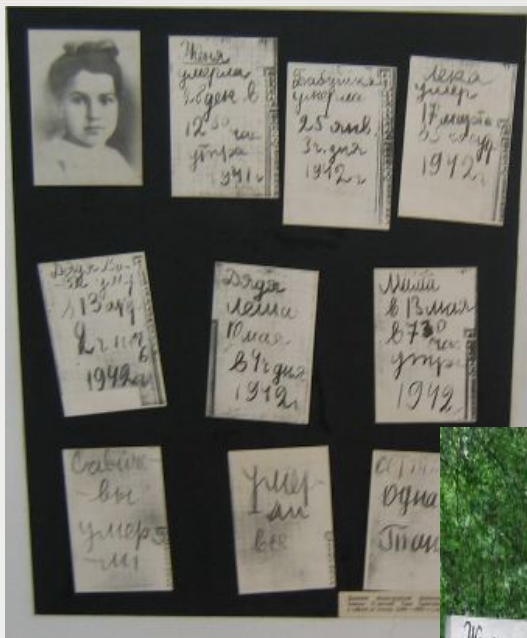 Женя
умерла
28 дек в
12 30 час
утра
1941 г
Бабушка
умерла
25 янв.
3 ч. дня
1942 г
Лека
умер
17 марта
1942 г
Дядя Ва-
ся умер
в 13 апр
2 ч ночь
1942 г
Дядя
Леша
10 мая
в 4 ч дня
1942 г
Мама
в 13 мая
в 7 30
час
утра
1942
Савиче-
-вы
умер
-ли
умер-
ли
все
одна